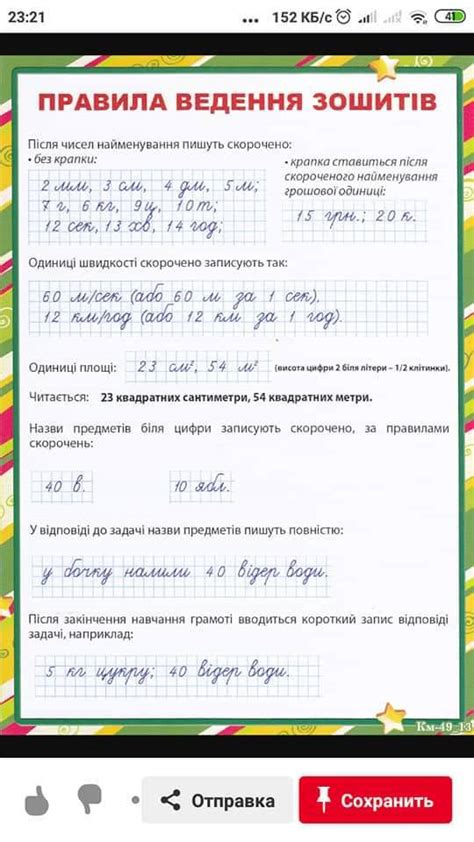 23:21
... 152 КБ/с 41
ПРАВИЛА ВЕДЕННЯ ЗОШИТІВ
Після чисел найменування пишуть скорочено:
• без крапки:
2 мм, 3 см, 4 дм, 5 м;
7 г, 6 кг, 9 ц, 10 т;
12 сек, 13 хв, 14 год;
• крапка ставиться після
скороченого найменування
грошової одиниці:
15 грн.; 20 к.
Одиниці швидкості скорочено записують так:
60 м/сек (або 60 м за 1 сек).
12 км/год (або 12 км за 1 год).
Одиниці площі: 23 см², 54 м² (висота цифри 2 біля літери – 1/2 клітинки).
Читається: 23 квадратних сантиметри, 54 квадратних метри.
Назви предметів біля цифри записують скорочено, за правилами
скорочень:
40 в. 10 ябл.
У відповіді до задачі назви предметів пишуть повністю:
у бочку налили 40 відер води.
Після закінчення навчання грамоті вводиться короткий запис відповіді
задачі, наприклад:
5 кг цукру; 40 відер води.
Км-49_13
Отправка
Сохранить